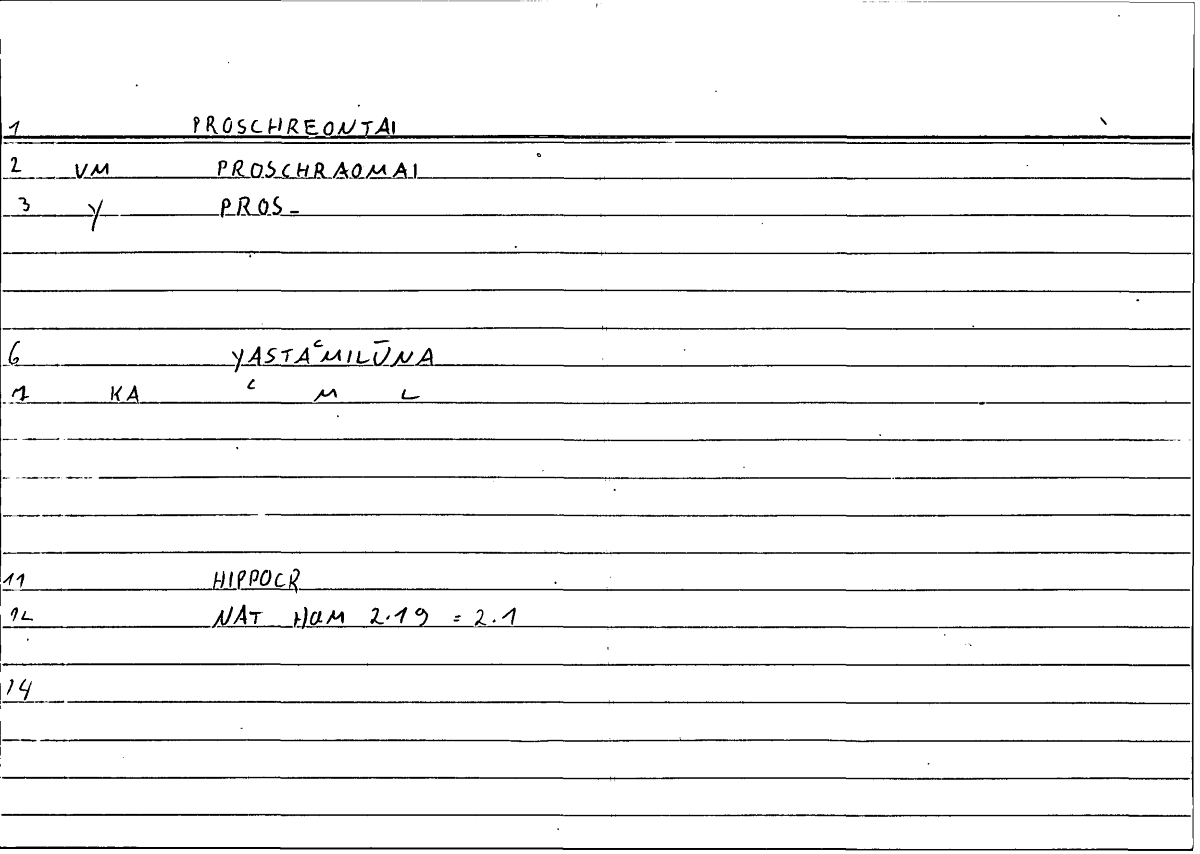 1 PROSCHREONTAI
2 VM PROSCHRAOMAI
3 Y PROS-
6 YASTAʿMILŪNA
7 KA ʿ M L
11 HIPPOCR
12 NAT HOM 2.19 = 2.1
14